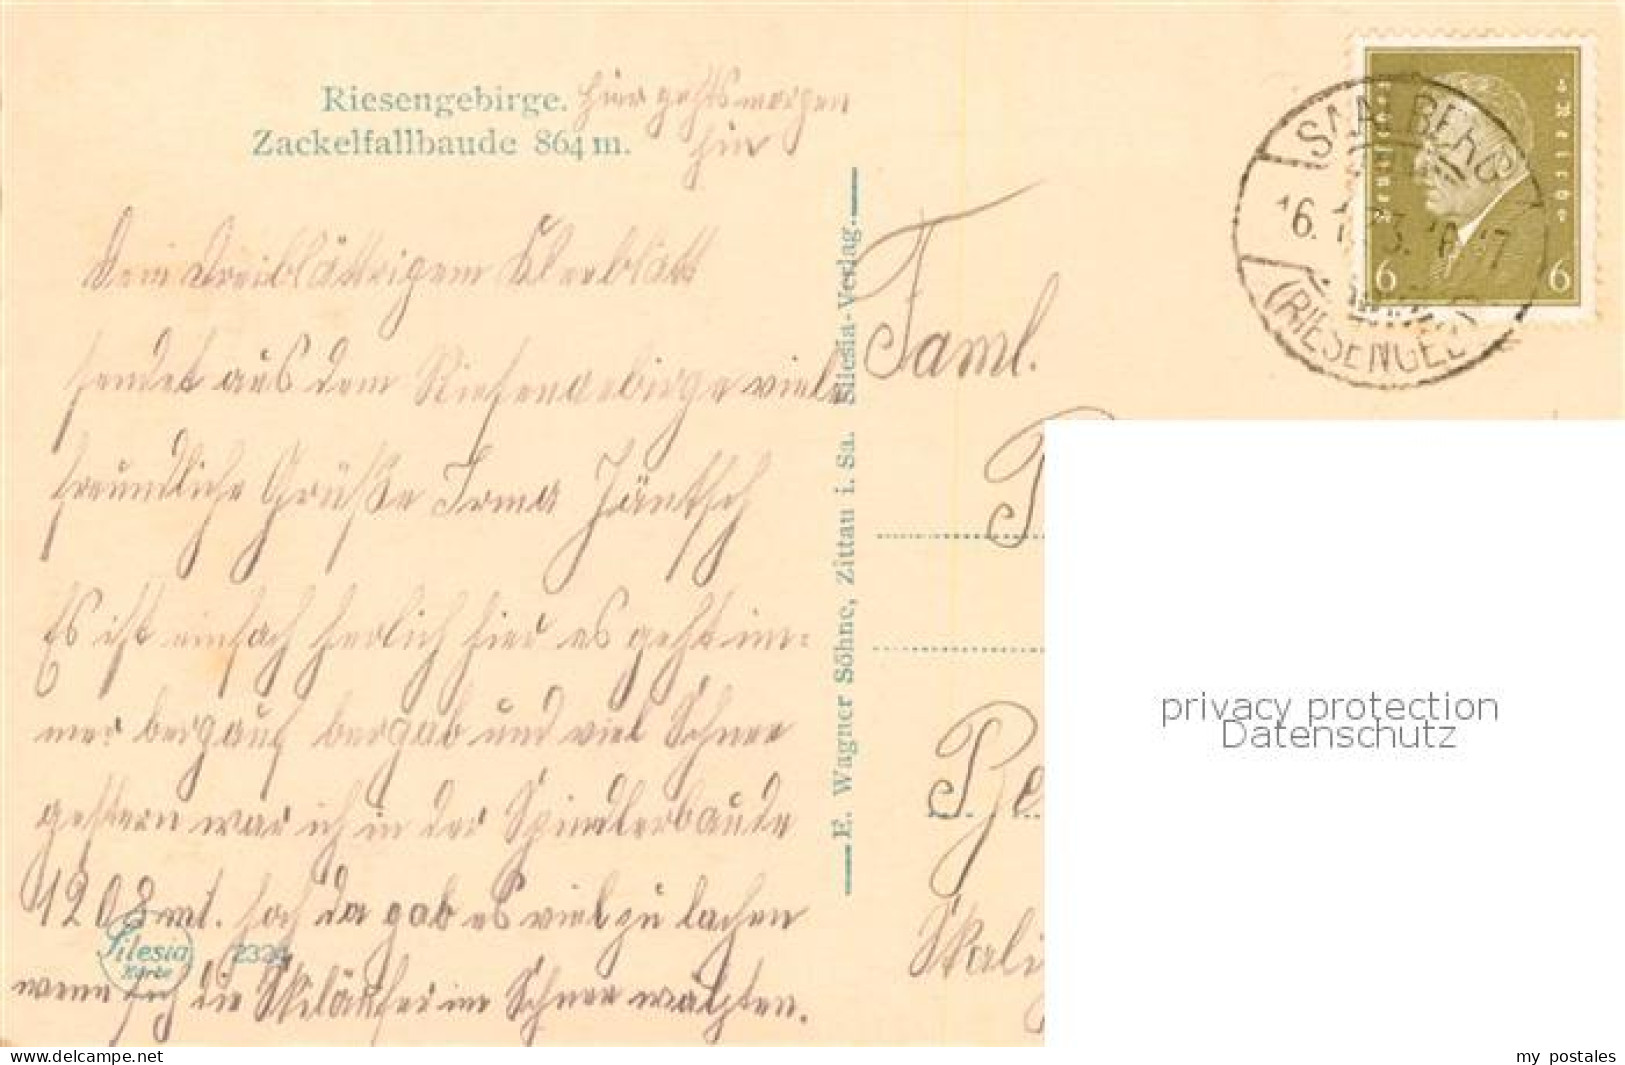 Riesengebirge. Hier gehts morgen
Zackelfallbaude 864 m. hin
Dem dreiblättrigem Kleeblatt
sendet aus dem Riesengebirge viele
freundliche Grüße Irma Jäntsch
Es ist einfach herlich hier es geht im=
mer bergauf bergab und viel Schnee
gestern war ich in der Spindlerbaude
1208 mt. hoch da gab es viel zu lachen
wenn sich die Skiläufer im Schnee wälzten.
Silesia
Karte
232
E. Wagner Söhne, Zittau i. Sa. Silesia-Verlag.
Faml.
SAALBERG
16. 1. 33. 16-17
(RIESENGEB
Deutsches Reich
6 6
privacy protection
Datenschutz
www.delcampe.net
my_postales